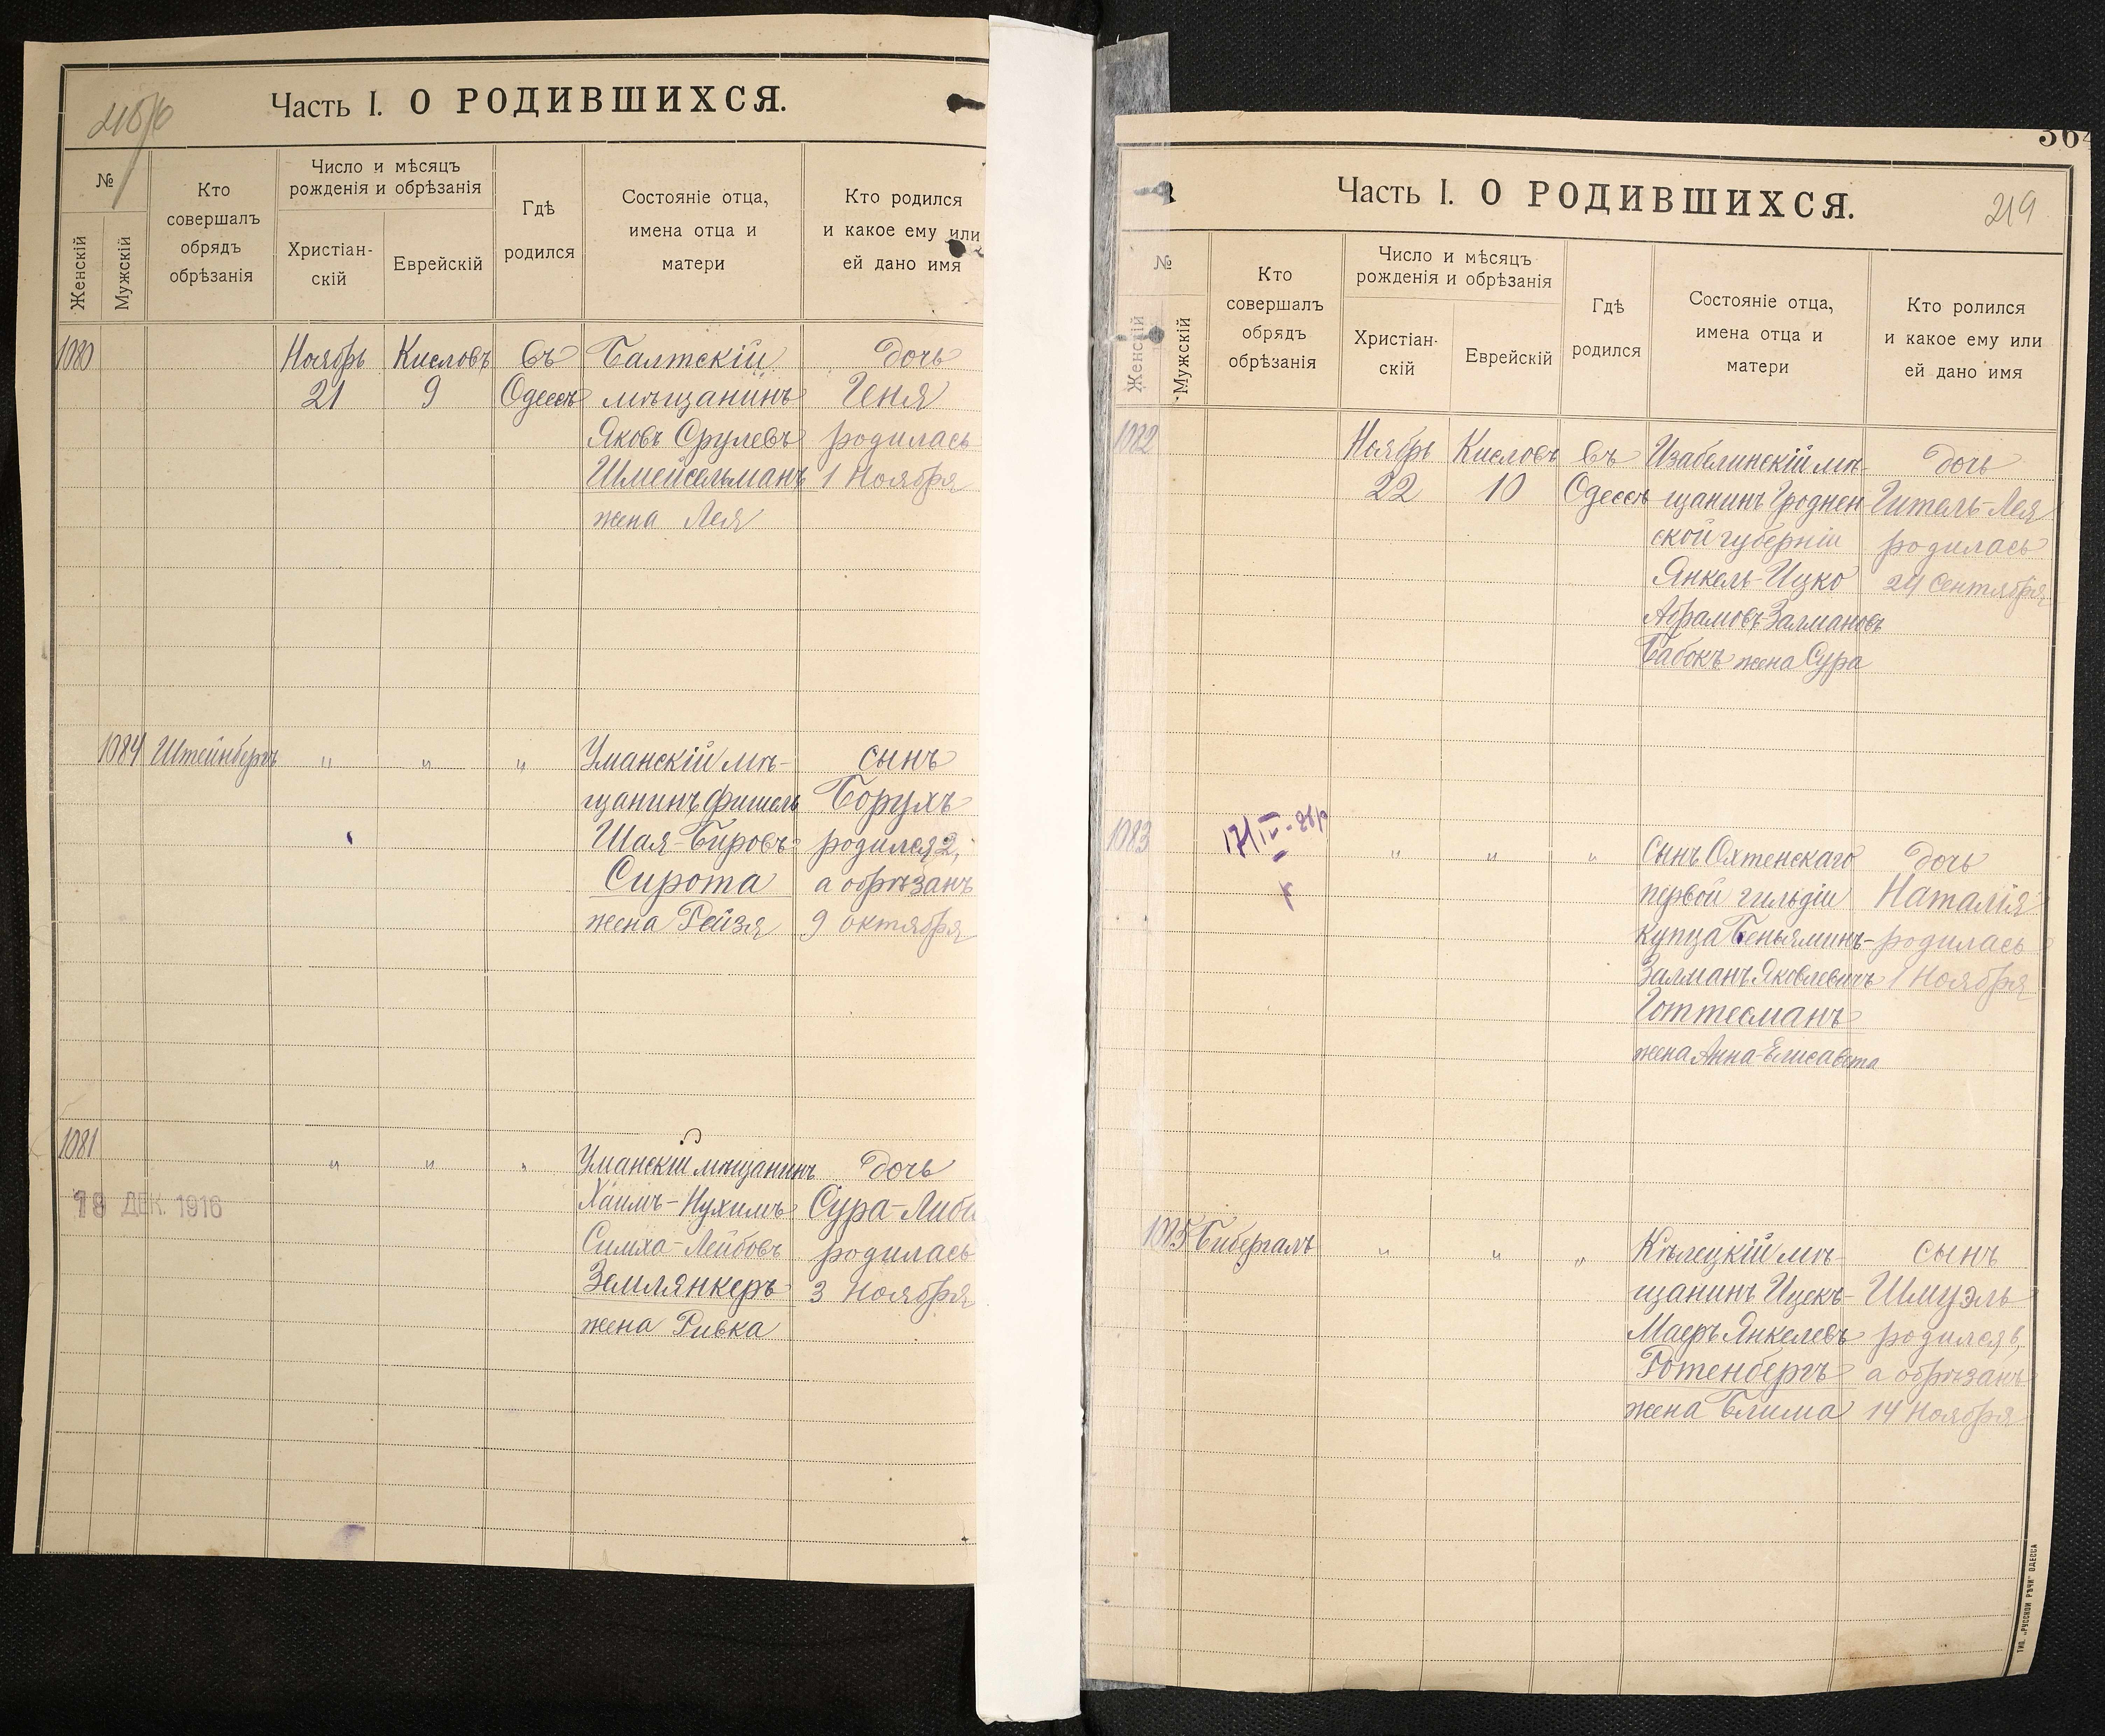 Часть I. О РОДИВШИХСЯ.
№
Женскій
Мужскій
Кто
совершалъ
обрядъ
обрѣзанія
Число и мѣсяцъ
рожденія и обрѣзанія
Христіан-
скій
Еврейскій
Гдѣ
родился
Состояніе отца,
имена отца и
матери
Кто родился
и какое ему или
ей дано имя
1080
Ноябрь Кисловъ въ Балтскій дочь
21 9 Одессѣ мѣщанинъ Геня
Яковъ Срулевъ родилась
Шмейсельманъ 1 Ноября
жена Лея
1084 Штейнбергъ " " " Уманскій мѣ- сынъ
щанинъ Фишель Борухъ
Шая-Бировъ родился 2,
Сирота а обрѣзанъ
жена Рейзя 9 октября
1081
" " " Уманскій мѣщанинъ дочь
18 ДЕК. 1916
Хаимъ-Нухимъ Сура-Либа
Симха-Лейбовъ родилась
Землянкеръ 3 Ноября
жена Ривка
364
Часть I. О РОДИВШИХСЯ. 219
№
Женскій
Мужскій
Кто
совершалъ
обрядъ
обрѣзанія
Число и мѣсяцъ
рожденія и обрѣзанія
Христіан-
скій
Еврейскій
Гдѣ
родился
Состояніе отца,
имена отца и
матери
Кто ролился
и какое ему или
ей дано имя
1082
Ноябрь Кисловъ въ Изабелинскій мѣ- дочь
22 10 Одессѣ щанинъ Гроднен- Гитель-Лея
ской губерніи родилась
Янкель-Ицко 24 Сентября
Абрамовъ-Залмановъ
Бабокъ жена Сура
1083
" " " Сынъ Охтенскаго дочь
первой гильдіи Наталія
купца Беньяминъ- родилась
Залманъ Яковлевичъ 1 Ноября
Готтесманъ
жена Анна-Елисавета
1085 Бибергалъ " " " Кѣлецкій мѣ- сынъ
щанинъ Ицекъ- Шмуэль
Маеръ Янкелевъ родился 6,
Ротенбергъ а обрѣзанъ
жена Блима 14 Ноября
ТИП. „РУССКОЙ РѢЧИ" ОДЕССА